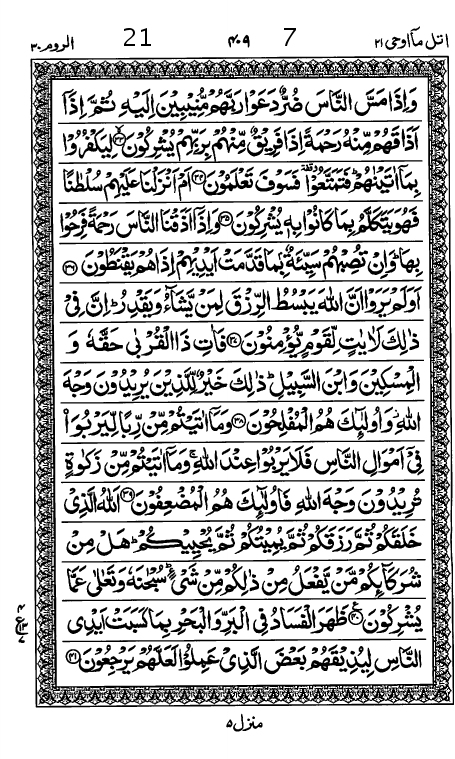 اتل مآ اوحی ۲۱ 7 ۴۰۹ 21 الروم ۳۰
وَاِذَا مَسَّ النَّاسَ ضُرٌّ دَعَوْا رَبَّهُمْ مُّنِيْبِيْنَ اِلَيْهِ ثُمَّ اِذَآ
اَذَاقَهُمْ مِّنْهُ رَحْمَةً اِذَا فَرِيْقٌ مِّنْهُمْ بِرَبِّهِمْ يُشْرِكُوْنَ ۳۳ لِيَكْفُرُوْا
بِمَآ اٰتَيْنٰهُمْ ؕ فَتَمَتَّعُوْا ٝ فَسَوْفَ تَعْلَمُوْنَ ۳۴ اَمْ اَنْزَلْنَا عَلَيْهِمْ سُلْطٰنًا
فَهُوَ يَتَكَلَّمُ بِمَا كَانُوْا بِهٖ يُشْرِكُوْنَ ۳۵ وَاِذَآ اَذَقْنَا النَّاسَ رَحْمَةً فَرِحُوْا
بِهَا ؕ وَاِنْ تُصِبْهُمْ سَيِّئَةٌۢ بِمَا قَدَّمَتْ اَيْدِيْهِمْ اِذَا هُمْ يَقْنَطُوْنَ ۳۶
اَوَلَمْ يَرَوْا اَنَّ اللّٰهَ يَبْسُطُ الرِّزْقَ لِمَنْ يَّشَآءُ وَيَقْدِرُ ؕ اِنَّ فِيْ
ذٰلِكَ لَاٰيٰتٍ لِّقَوْمٍ يُّؤْمِنُوْنَ ۳۷ فَاٰتِ ذَا الْقُرْبٰى حَقَّهٗ وَ
الْمِسْكِيْنَ وَابْنَ السَّبِيْلِ ؕ ذٰلِكَ خَيْرٌ لِّلَّذِيْنَ يُرِيْدُوْنَ وَجْهَ
اللّٰهِ ؗ وَاُولٰٓئِكَ هُمُ الْمُفْلِحُوْنَ ۳۸ وَمَآ اٰتَيْتُمْ مِّنْ رِّبًا لِّيَرْبُوَا۟
فِيْٓ اَمْوَالِ النَّاسِ فَلَا يَرْبُوْا عِنْدَ اللّٰهِ ۚ وَمَآ اٰتَيْتُمْ مِّنْ زَكٰوةٍ
تُرِيْدُوْنَ وَجْهَ اللّٰهِ فَاُولٰٓئِكَ هُمُ الْمُضْعِفُوْنَ ۳۹ اَللّٰهُ الَّذِيْ
خَلَقَكُمْ ثُمَّ رَزَقَكُمْ ثُمَّ يُمِيْتُكُمْ ثُمَّ يُحْيِيْكُمْ ؕ هَلْ مِنْ
شُرَكَآئِكُمْ مَّنْ يَّفْعَلُ مِنْ ذٰلِكُمْ مِّنْ شَيْءٍ ؕ سُبْحٰنَهٗ وَتَعٰلٰى عَمَّا
يُشْرِكُوْنَ ۴۰ ظَهَرَ الْفَسَادُ فِي الْبَرِّ وَالْبَحْرِ بِمَا كَسَبَتْ اَيْدِي
النَّاسِ لِيُذِيْقَهُمْ بَعْضَ الَّذِيْ عَمِلُوْا لَعَلَّهُمْ يَرْجِعُوْنَ ۴۱
منزل ۵